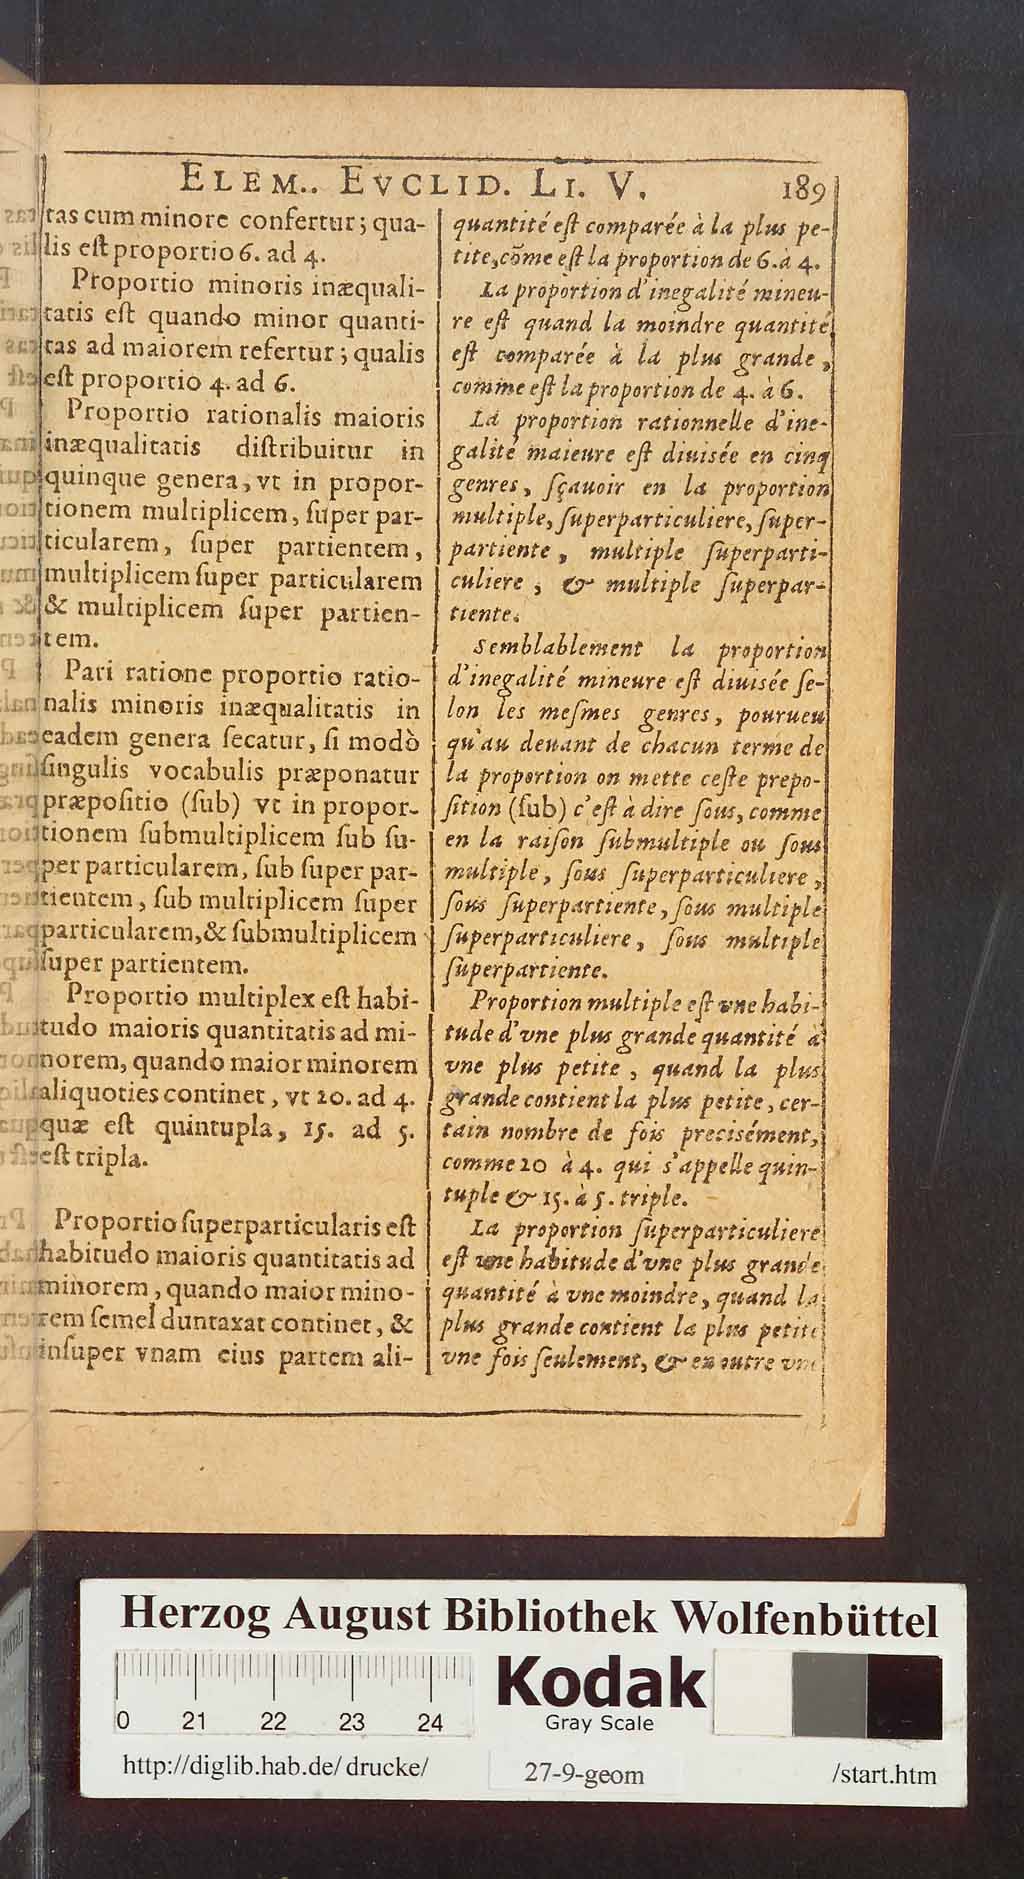 ELEM.. EVCLID. LI. V. 189
tas cum minore confertur; qua-
lis est proportio 6. ad 4.
Proportio minoris inæquali-
tatis est quando minor quanti-
tas ad maiorem refertur; qualis
est proportio 4. ad 6.
Proportio rationalis maioris
inæqualitatis distribuitur in
quinque genera, vt in propor-
tionem multiplicem, super par-
ticularem, super partientem,
multiplicem super particularem
& multiplicem super partien-
tem.
Pari ratione proportio ratio-
nalis minoris inæqualitatis in
eadem genera secatur, si modò
singulis vocabulis præponatur
præpositio (sub) vt in propor-
tionem submultiplicem sub su-
per particularem, sub super par-
tientem, sub multiplicem super
particularem, & submultiplicem
super partientem.
Proportio multiplex est habi-
tudo maioris quantitatis ad mi-
norem, quando maior minorem
aliquoties continet, vt 20. ad 4.
quæ est quintupla, 15. ad 5.
est tripla.
Proportio superparticularis est
habitudo maioris quantitatis ad
minorem, quando maior mino-
rem semel duntaxat continet, &
insuper vnam eius partem ali-
quantité est comparée à la plus pe-
tite, cõme est la proportion de 6. à 4.
La proportion d'inegalité mineu-
re est quand la moindre quantité
est comparée à la plus grande,
comme est la proportion de 4. à 6.
La proportion rationnelle d'ine-
galité maieure est diuisée en cinq
genres, sçauoir en la proportion
multiple, superparticuliere, super-
partiente, multiple superparti-
culiere, & multiple superpar-
tiente.
Semblablement la proportion
d'inegalité mineure est diuisée se-
lon les mesmes genres, pourueu
qu'au deuant de chacun terme de
la proportion on mette ceste prepo-
sition (sub) c'est à dire sous, comme
en la raison submultiple ou sous
multiple, sous superparticuliere,
sous superpartiente, sous multiple
superparticuliere, sous multiple
superpartiente.
Proportion multiple est vne habi-
tude d'vne plus grande quantité à
vne plus petite, quand la plus
grande contient la plus petite, cer-
tain nombre de fois precisément,
comme 20 à 4. qui s'appelle quin-
tuple & 15. à 5. triple.
La proportion superparticuliere
est vne habitude d'vne plus grande
quantité à vne moindre, quand la
plus grande contient la plus petite
vne fois seulement, & en outre vne
Herzog August Bibliothek Wolfenbüttel
0 21 22 23 24
Kodak
Gray Scale
http://diglib.hab.de/drucke/ 27-9-geom /start.htm